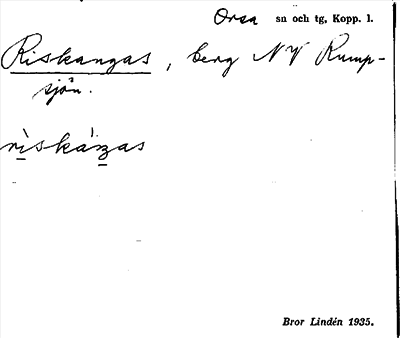 Orsa sn och tg, Kopp. l.
Riskangas, berg NV Rump-
sjön.
rìskáŋas
Bror Lindén 1935.